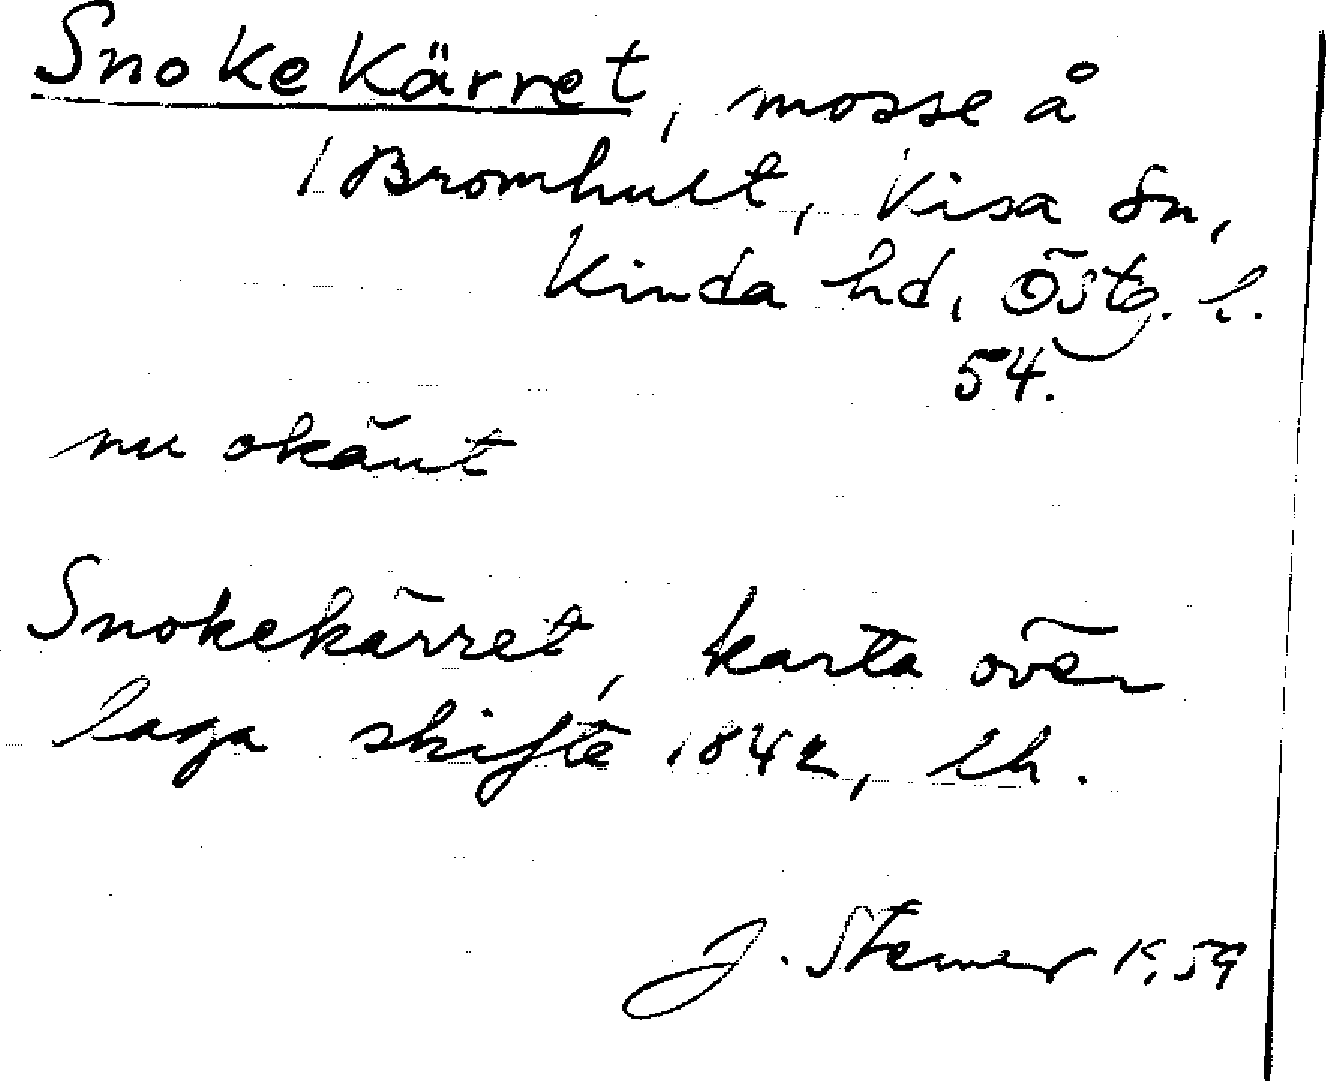 Snokekärret, mosse å
Bromhult, Kisa sn,
Kinda hd, Östg. l.
54.
nu okänt
Snokekärret, karta över
laga skifte 1842, lh.
J. 1959